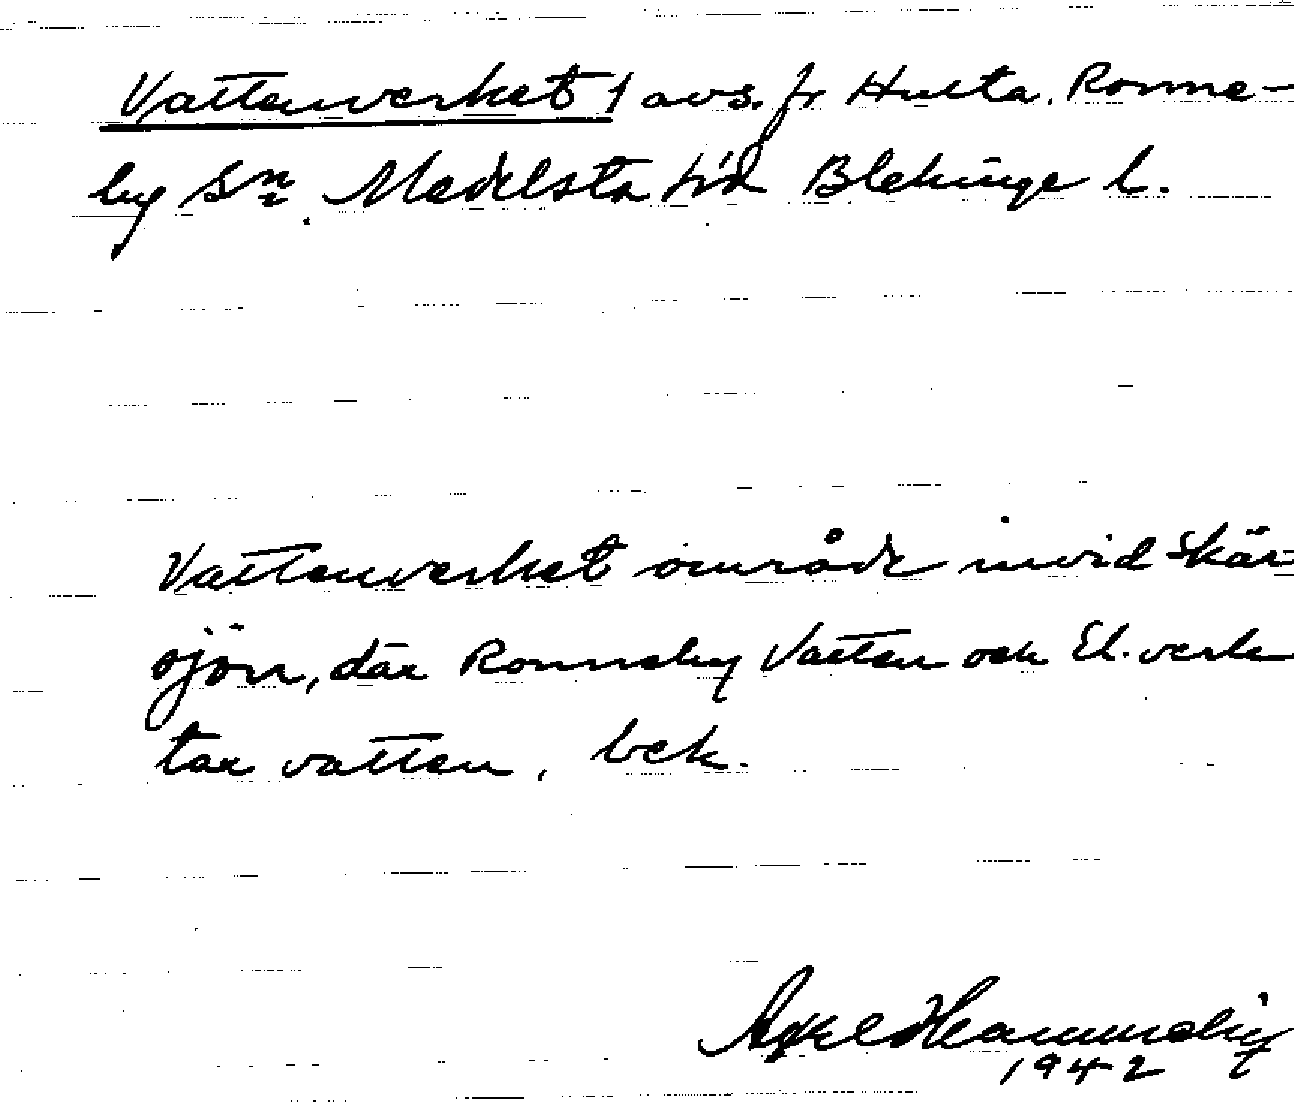 Vattenverket 1 avs. fr Hulta. Ronne-
by Sn. Medelsta hd Blekinge l.
Vattenverket område invid Skär-
sjön, där Ronneby Vatten och El.verk
tar vatten, bek.
Axel Hammeby
1942